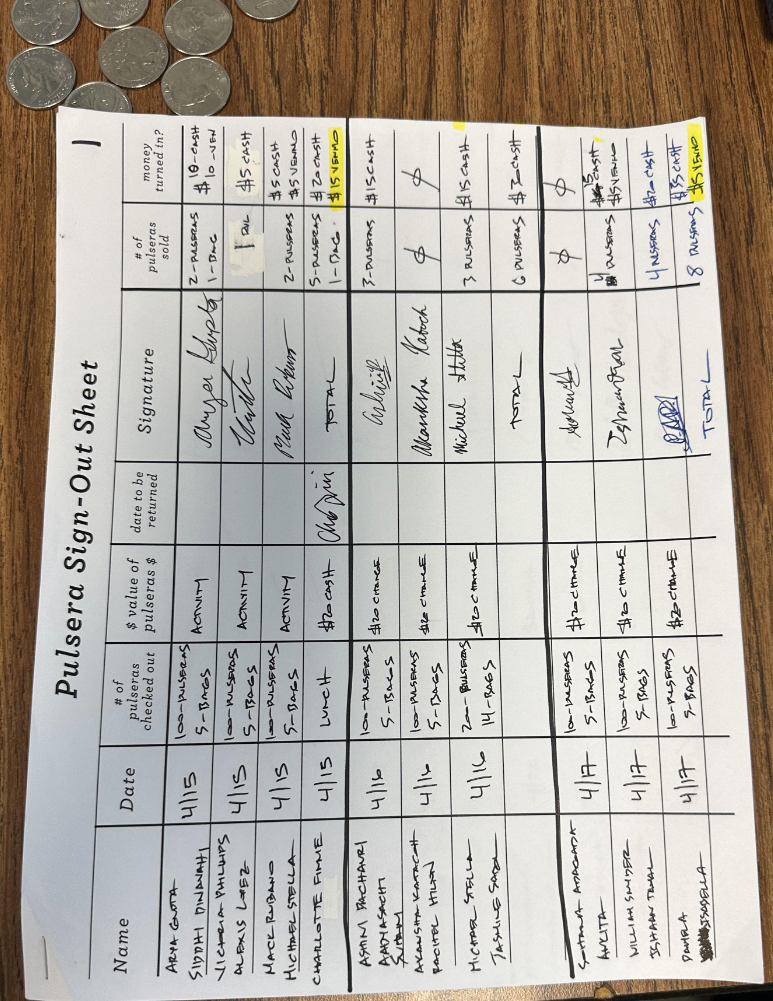 Pulsera Sign-Out Sheet
1
Name
Date
# of
pulseras
checked out
$ value of
pulseras $
date to be
returned
Signature
# of
pulseras
sold
money
turned in?
ARYA GUPTA
SIDDHI
4/15
100-PULSERAS
5-BAGS
ACTIVITY
Arya Gupta
2-PULSERAS
1-BAG
$ 10-CASH
$ 10-VEN
VICTORIA PHILLIPS
ALEXIS LOPEZ
4/15
100-PULSERAS
5-BAGS
ACTIVITY
1
$5 CASH
MACK RUBANO
MICHAEL STELLA
4/15
100-PULSERAS
5-BAGS
ACTIVITY
2-PULSERAS
$5 CASH
$5 VENMO
CHARLOTTE FINNE
4/15
LUNCH
$20 CASH
TOTAL
5-PULSERAS
1-BAG
$20 CASH
$15 VENMO
ASHNI PACHAURI
AADYASACHI
4/16
100-PULSERAS
5-BAGS
$20 CHANGE
3-PULSERAS
$15 CASH
AKANSHA KATOCH
RACHEL
4/16
100-PULSERAS
5-BAGS
$20 CHANGE
Akanksha Katoch
ø
ø
MICHAEL STELLA
JASMINE
4/16
200-PULSERAS
14-BAGS
$20 CHANGE
Michael Stella
3 PULSERAS
$15 CASH
TOTAL
6 PULSERAS
$30 CASH
ANKITA
4/17
100-PULSERAS
5-BAGS
$20 CHANGE
ø
ø
WILLIAM SNYDER
ISHAAN
4/17
100-PULSERAS
5-BAGS
$20 CHANGE
4 PULSERAS
$15 CASH
$5 VENMO
ISABELLA
4/17
100-PULSERAS
5-BAGS
$20 CHANGE
4 PULSERAS
$20 CASH
TOTAL
8 PULSERAS
$35 CASH
$5 VENMO